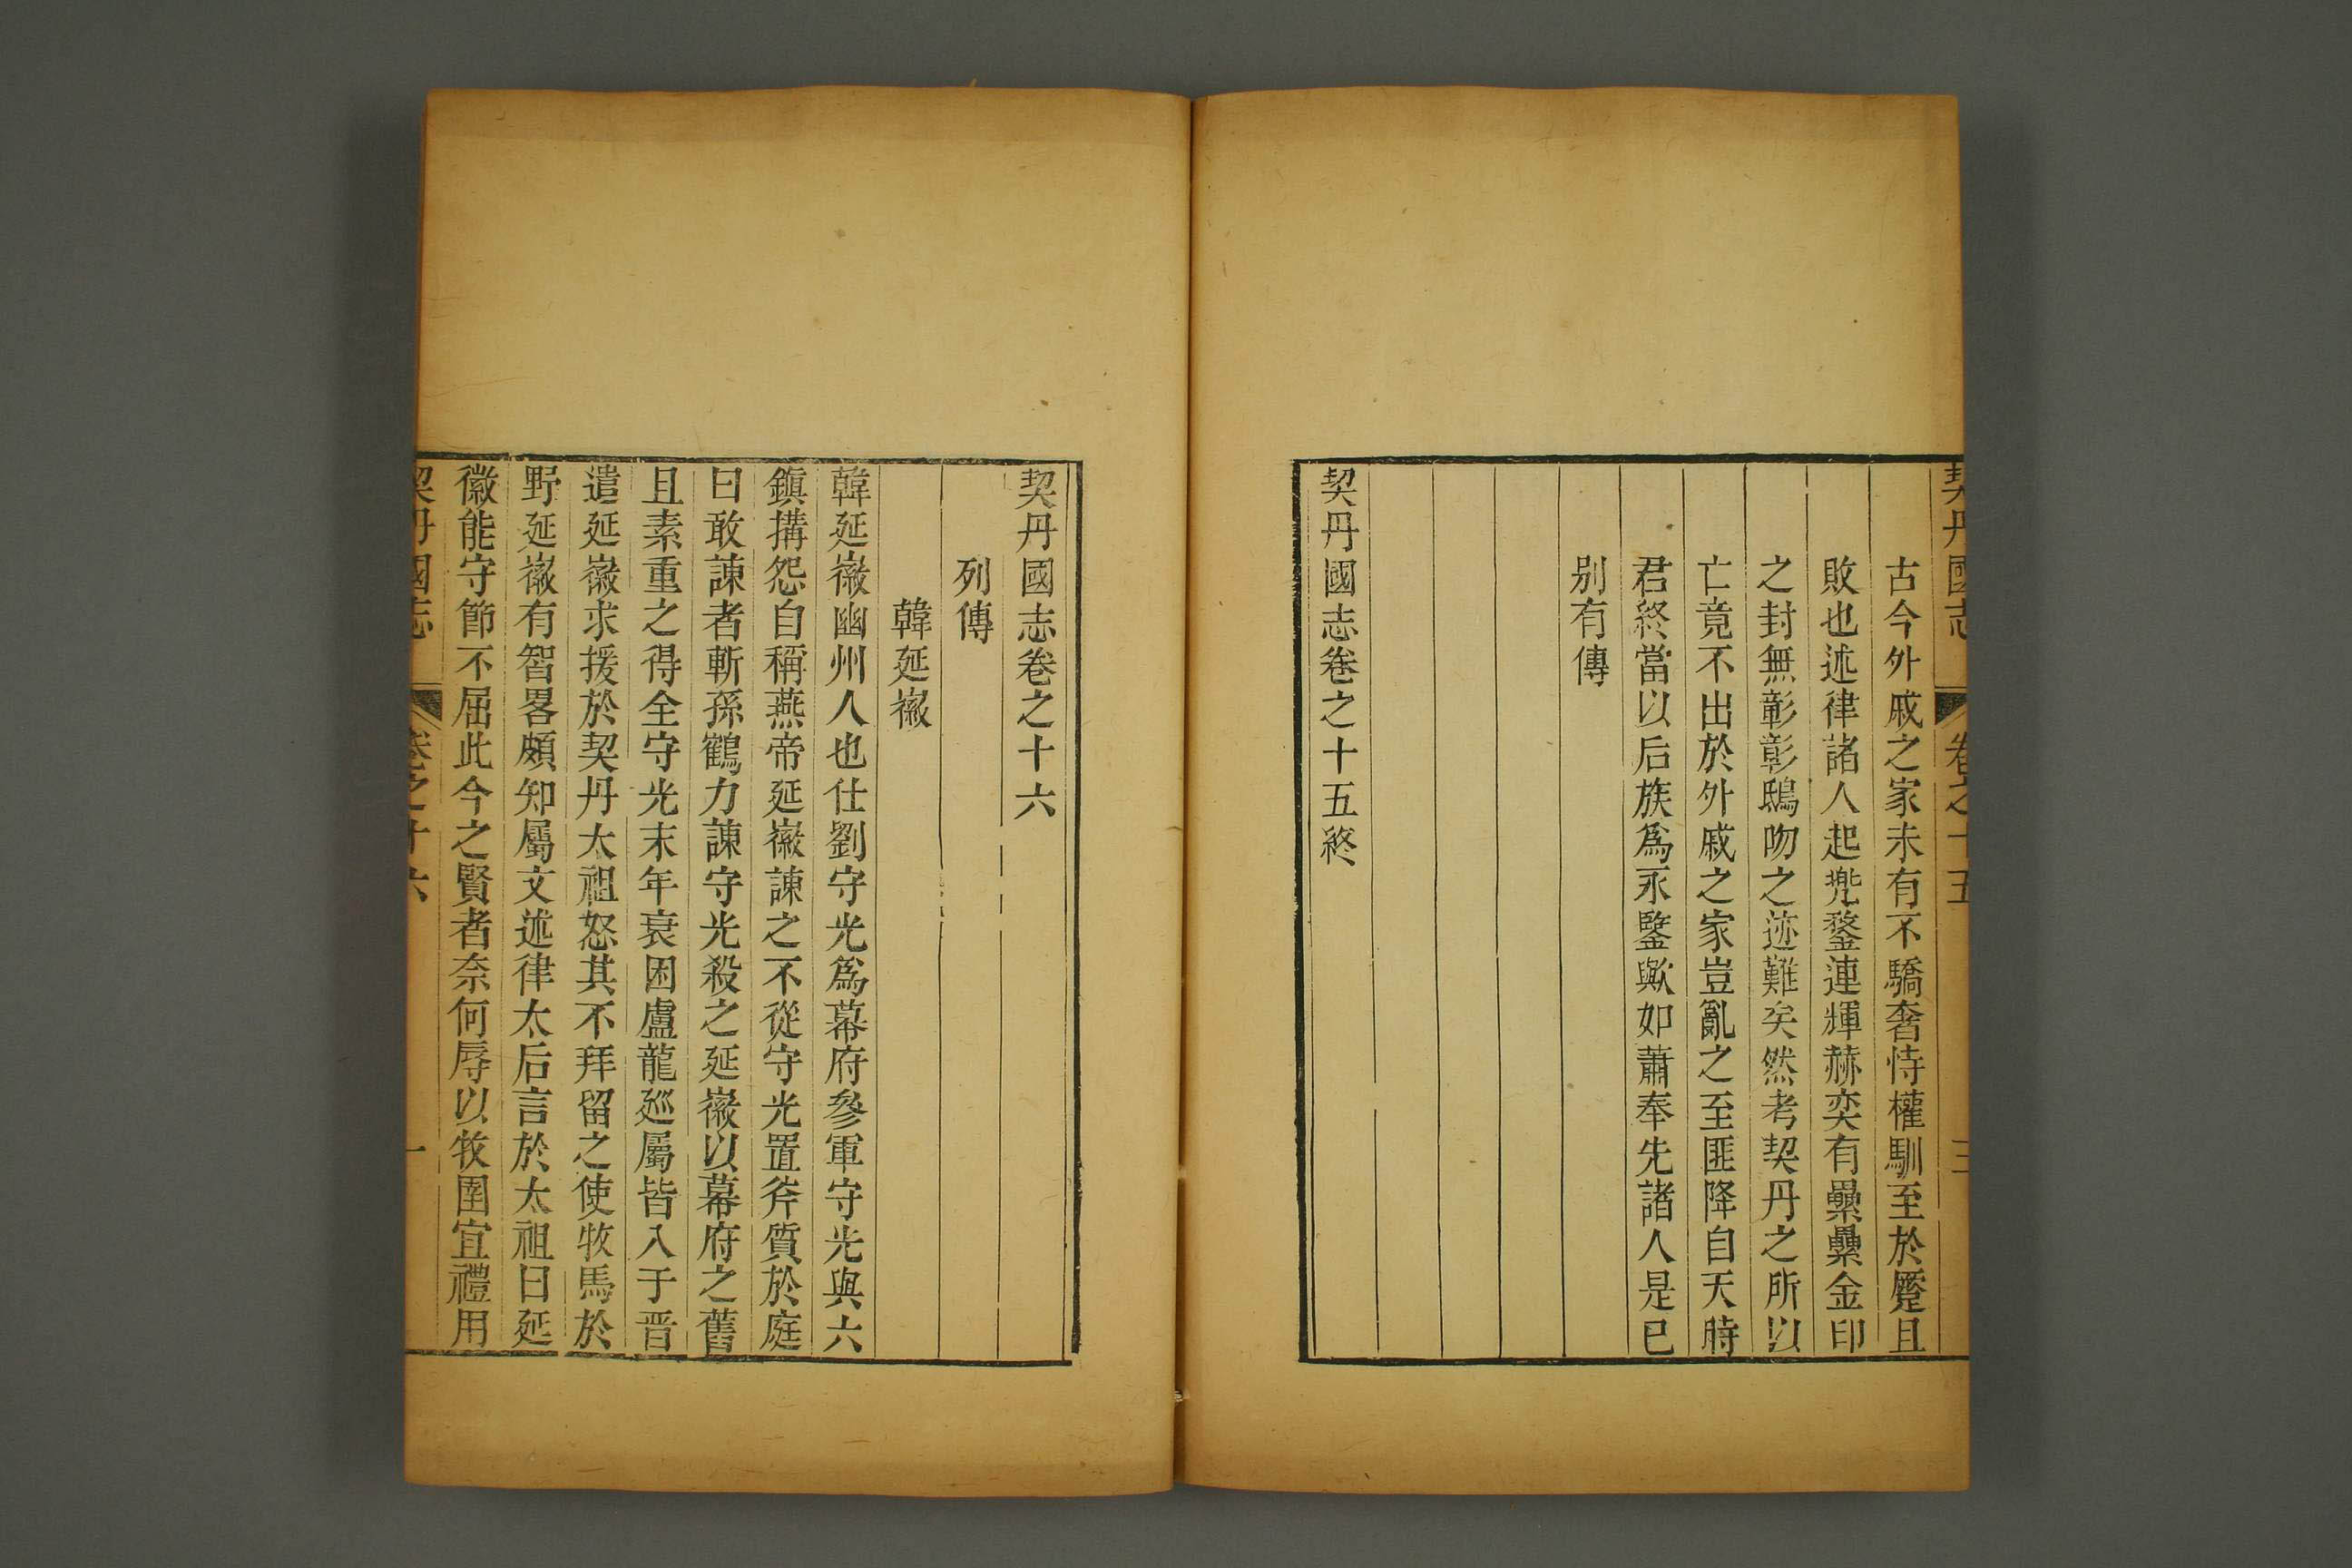 契丹國志
卷之十五
三
古今外戚之家未有不驕奢恃權馴至於蹷且
敗也述律諸人起兠鍪連輝赫奕有纍纍金印
之封無彰彰鴟吻之迹難矣然考契丹之所以
亡竟不出於外戚之家豈亂之至匪降自天時
君終當以后族爲永鑒歟如蕭奉先諸人是已
别有傳
契丹國志卷之十五終
契丹國志卷之十六
列傳
韓延徽
韓延徽幽州人也仕劉守光爲幕府參軍守光與六
鎮搆怨自稱燕帝延徽諫之不從守光置斧質於庭
曰敢諫者斬孫鶴力諫守光殺之延徽以幕府之舊
且素重之得全守光末年衰困盧龍廵屬皆入于晋
遣延徽求援於契丹太祖怒其不拜留之使牧馬於
野延徽有智畧頗知屬文述律太后言於太祖曰延
徽能守節不屈此今之賢者奈何辱以牧圉宜禮用
契丹國志
卷之十六
一